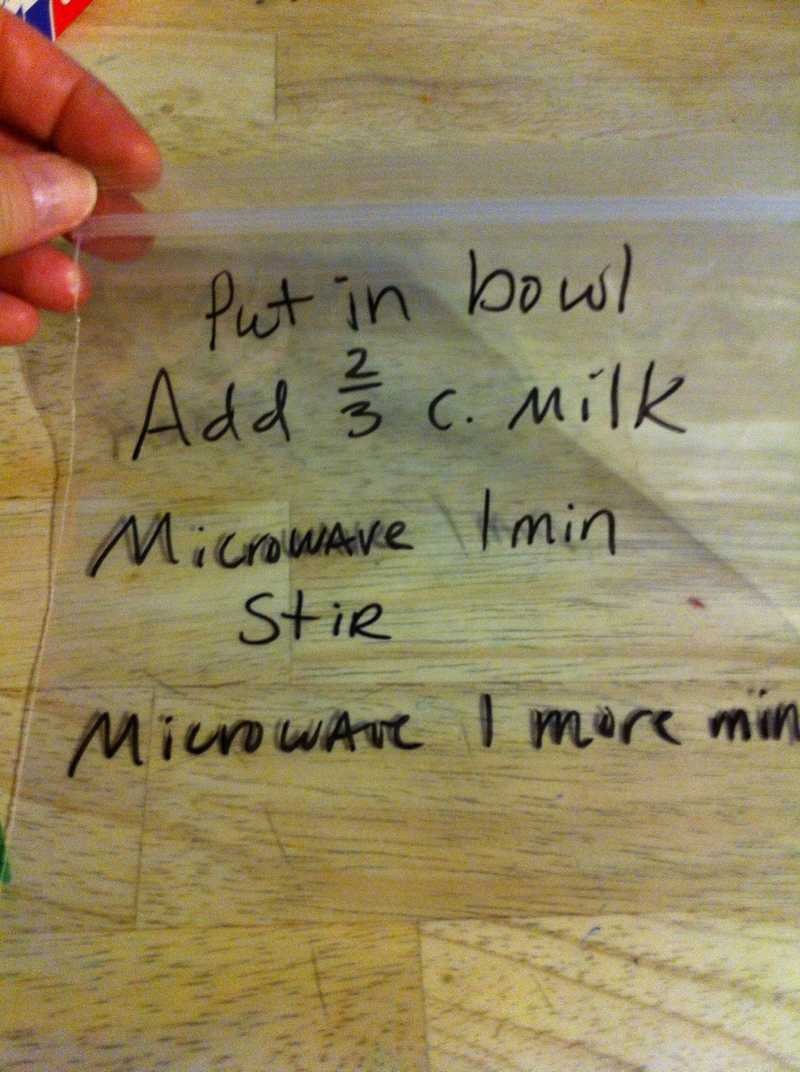 Put in bowl
Add 2/3 c. Milk
Microwave 1 min
Stir
Microwave 1 more min